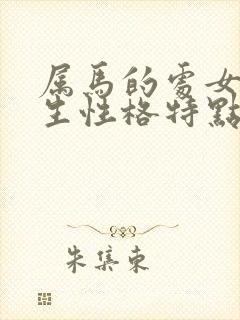 属馬的處女
生性格特點
朱集東